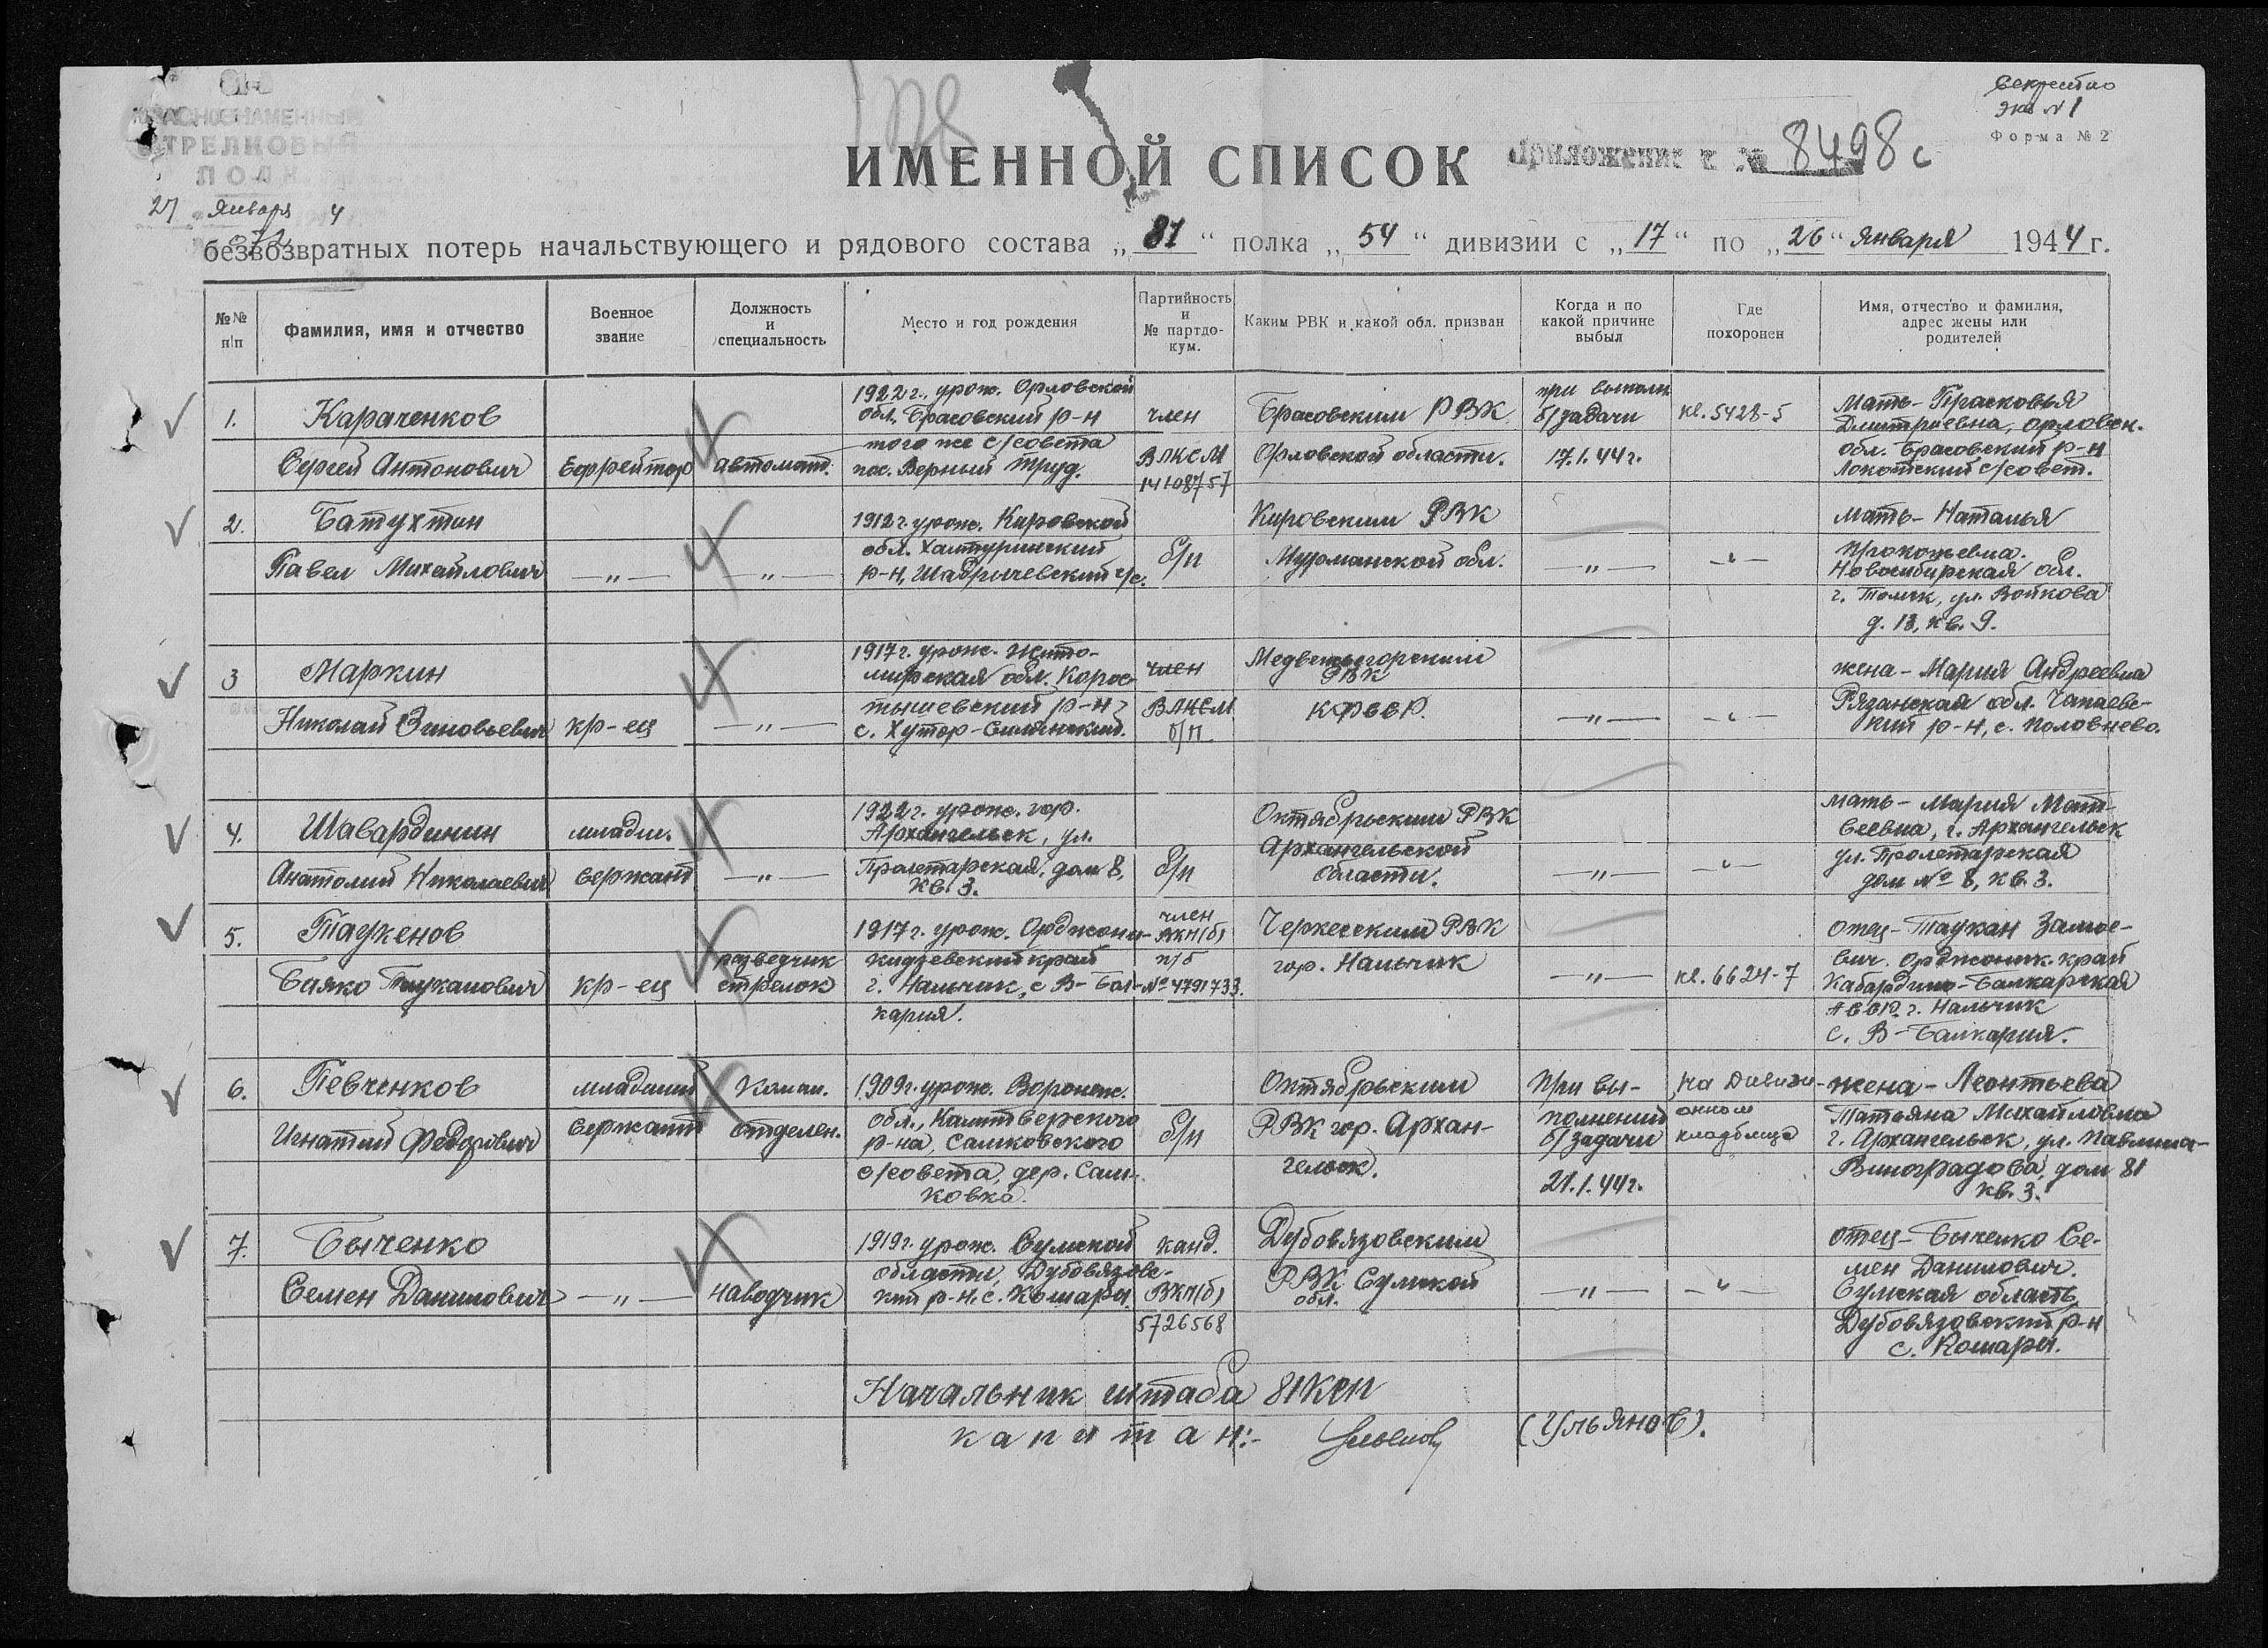 КРАСНОЗНАМЕННЫЙ
СТРЕЛКОВЫЙ
ПОЛК
27 Января 4
Секретно
экз N 1
Форма № 2
Приложение к № 8498с
ИМЕННОЙ СПИСОК
безвозвратных потерь начальствующего и рядового состава „81“ полка „54“ дивизии с „17“ по „26“ января 1944 г.
№№ п/п
Фамилия, имя и отчество
Военное звание
Должность и специальность
Место и год рождения
Партийность и № партдокум.
Каким РВК и какой обл. призван
Когда и по какой причине выбыл
Где похоронен
Имя, отчество и фамилия, адрес жены или родителей
1.
Караченков
Сергей Антонович
Ефрейтор
автомат.
1922г., урож. Орловской
обл. Брасовский р-н
того же с/совета
пос. Верный Труд.
член
ВЛКСМ
14108757
Брасовским РВК
Орловской области.
при выполн.
б/задачи
17.1.44г.
кл. 5428-5
Мать-Прасковья
Дмитриевна, орловск.
обл. Брасовский р-н
Локотский с/совет.
2.
Батухтин
Павел Михайлович
—„—
—„—
1912г. урож. Кировской
обл. Халтуринский
р-н, Шабрычевский с/с.
б/п
Кировским РВК
Мурманской обл.
—„—
—„—
мать-Наталья
Прокопьевна.
Новосибирская обл.
г. Томск, ул. Войкова
д. 13, кв. 9.
3
Маркин
Николай Зиновьевич
кр-ец
—„—
1917г. урож. Жито-
мирская обл. Корос-
тышевский р-н
с. Хутор-
член
ВЛКСМ
б/п.
Медвежьегорским
РВК
КФССР.
—„—
—„—
жена-Мария Андреевна
Рязанская обл. Чапаевс-
кий р-н, с. Половнево.
4.
Шавардинин
Анатолий Николаевич
младш.
сержант
—„—
1922г. урож. гор.
Архангельск, ул.
Пролетарская, дом 8,
кв. 3.
б/п
Октябрьским РВК
Архангельской
области.
—„—
—„—
мать-Мария Мат-
веевна, г. Архангельск
ул. Пролетарская
дом № 8, кв. 3.
5.
Таукенов
Бияко Тауканович
кр-ец
разведчик
стрелок
1917г. урож. Орджони-
кидзевский край
г. Нальчик, с В-Бал-
кария.
член
ВКП(б)
п/б
№4791733.
Черкесским РВК
гор. Нальчик
—„—
кл. 6624-7
отец-Таукан
вич. Орджоник. край
Кабардино-Балкарская
АССР. г. Нальчик
с. В-Балкария.
6.
Певченков
Игнатий Федорович
младший
сержант
Коман.
отделен.
1909г. урож. Воронеж.
обл.,
р-на, Салковского
с/совета, дер. Сал-
ковка.
б/п
Октябрьским
РВК гор. Архан-
гельск.
При вы-
полнении
б/задачи
21.1.44г.
на дивизи-
онном
кладбище
жена-Леонтьева
Татьяна Михайловна
г. Архангельск, ул. Павлина-
Виноградова, дом 81
кв. 3.
7.
Быченко
Семен Данилович
—„—
наводчик
1919г. урож. Сумской
области, Дубовязовс-
кий р-н, с. Кошары.
канд.
ВКП(б)
5726568
Дубовязовским
РВК Сумской
обл.
—„—
—„—
отец-Быченко Се-
мен Данилович.
Сумская область
Дубовязовский р-н
с. Кошары.
Начальник штаба 81КСП
капитан:- (Ульянов).